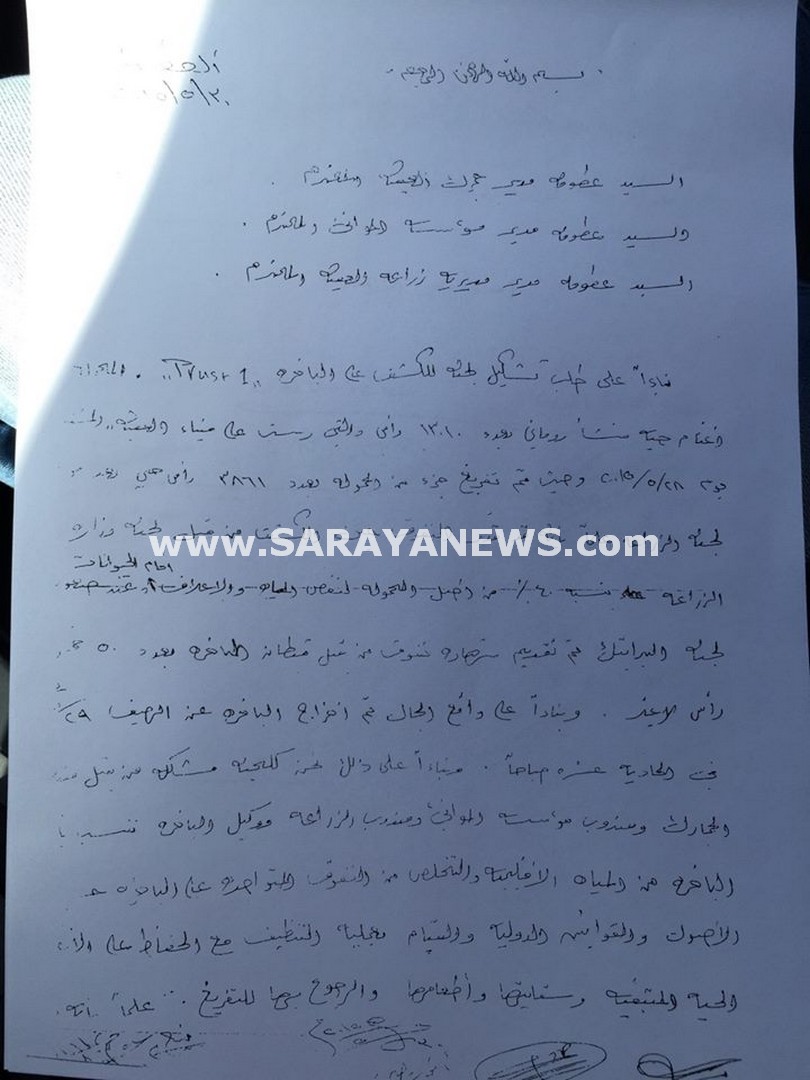 بسم الله الرحمن الرحيم
السيد عطوفة مدير جمرك العقبة المحترم .
السيد عطوفة مدير مؤسسة الموانئ المحترم .
السيد عطوفة مدير مديرية زراعة العقبة المحترم .
بناءاً على طلب تشكيل لجنة للكشف على الباخرة ,, Trust 1 ,, .
أغنام حية منشأ روماني بعدد ١٣٠١٠ رأس والتي رست على ميناء العقبة
يوم ٢٠١٥/٥/٢٨ وحيث تم تفريغ جزء من الحمولة بعدد ٣٨٦١ رأس حي بعد
لجنة من قبل لجنة وزارة
www.SARAYANEWS.com
امام الحيوانات
الزراعة نسبة ٤٠٪ من أصل الحمولة لنقص المياه والاعلاف
لجنة البراتيك تم تقديم شهادة نفوق من قبل قبطان الباخرة بعدد ٥٠
رأس لا غير . وبناءاً على واقع الحال تم اخراج الباخرة عن الرصيف ٢٩
في الحادية عشرة صباحاً . وبناءاً على ذلك نحن كلجنة مشكلة من قبل
الجمارك ومندوب مؤسسة الموانئ ومندوب الزراعة ووكيل الباخرة ننسب
الباخرة من المياه الاقليمية والتخلص من النفوق المتواجدة على الباخرة
الأصول والقوانين الدولية والقيام بعملية التنظيف مع الحفاظ على
الحية المتبقية وسقايتها وأطعامها والرجوع بها للتفريغ . علماً بأنه